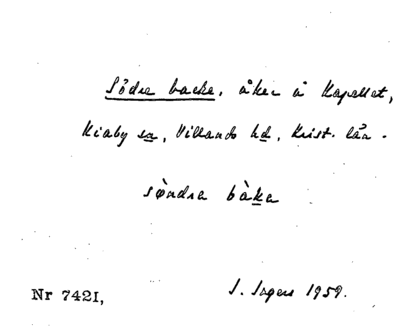 Södre backe, åker å Kapellet,
Kiaby sn, Villands hd, Krist. län.
sø̀ndra bàka
Nr 7421,
J. Ingers 1959.